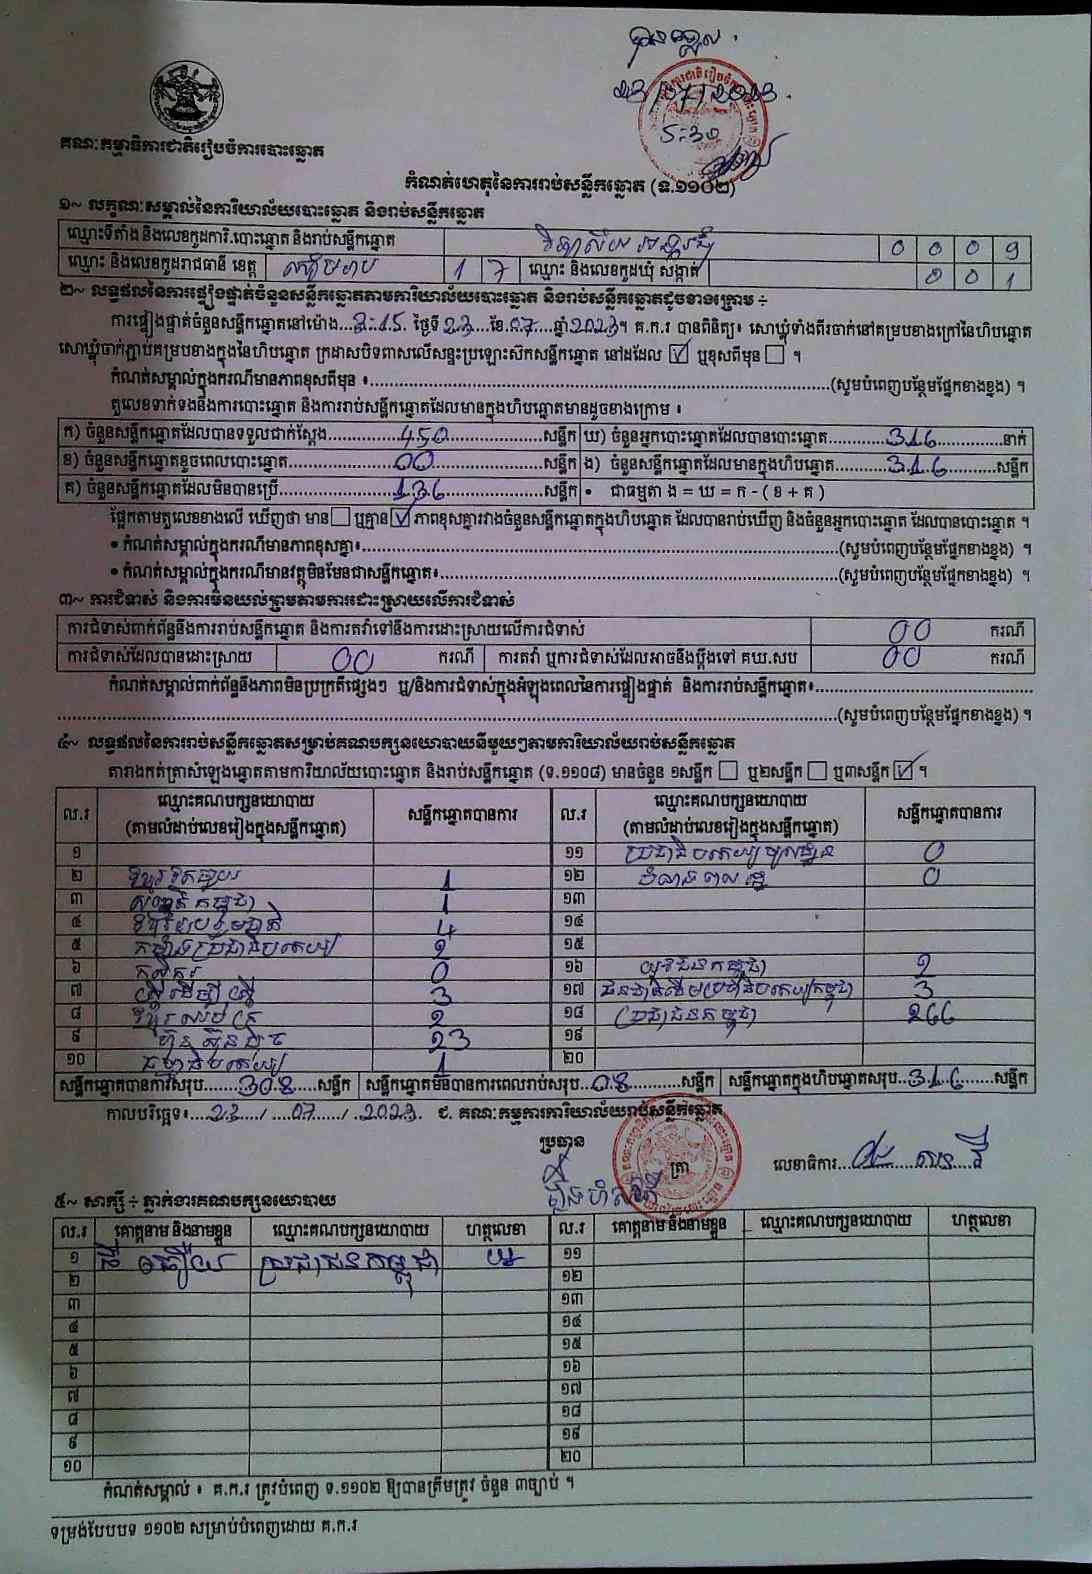 បានឃើញ
23/07/2023
5:30
គណៈកម្មាធិការជាតិរៀបចំការបោះឆ្នោត
កំណត់ហេតុនៃការរាប់សន្លឹកឆ្នោត (ទ.១១០២)
១~ លក្ខណៈសម្គាល់នៃការិយាល័យបោះឆ្នោត និងរាប់សន្លឹកឆ្នោត
ឈ្មោះទីតាំង និងលេខកូដការិ.បោះឆ្នោត និងរាប់សន្លឹកឆ្នោត វិទ្យាល័យ អង្គរជុំ 0 0 0 9
ឈ្មោះ និងលេខកូដរាជធានី ខេត្ត សៀមរាប 1 7 ឈ្មោះ និងលេខកូដឃុំ សង្កាត់ 0 0 1
២~ លទ្ធផលនៃការផ្ទៀងផ្ទាត់ចំនួនសន្លឹកឆ្នោតតាមការិយាល័យបោះឆ្នោត និងរាប់សន្លឹកឆ្នោតដូចខាងក្រោម ÷
ការផ្ទៀងផ្ទាត់ចំនួនសន្លឹកឆ្នោតនៅម៉ោង...3:15. ថ្ងៃទី 23...ខែ.07....ឆ្នាំ 2023។ គ.ក.រ បានពិនិត្យ៖ សោឃ្លុំទាំងពីរចាក់នៅគម្របខាងក្រៅនៃហិបឆ្នោត
សោឃ្លុំចាក់ភ្ជាប់គម្របខាងក្នុងនៃហិបឆ្នោត ក្រដាសបិទពាសលើសន្ទះប្រឡោះស៊កសន្លឹកឆ្នោត នៅដដែល ☑ ឬខុសពីមុន ☐ ។
កំណត់សម្គាល់ក្នុងករណីមានភាពខុសពីមុន ៖......(សូមបំពេញបន្ថែមផ្នែកខាងខ្នង) ។
តួលេខទាក់ទងនឹងការបោះឆ្នោត និងការរាប់សន្លឹកឆ្នោតដែលមានក្នុងហិបឆ្នោតមានដូចខាងក្រោម ៖
ក) ចំនួនសន្លឹកឆ្នោតដែលបានទទួលជាក់ស្តែង......450......សន្លឹក ឃ) ចំនួនអ្នកបោះឆ្នោតដែលបានបោះឆ្នោត......316......នាក់
ខ) ចំនួនសន្លឹកឆ្នោតខូចពេលបោះឆ្នោត......00......សន្លឹក ង) ចំនួនសន្លឹកឆ្នោតដែលមានក្នុងហិបឆ្នោត......316......សន្លឹក
គ) ចំនួនសន្លឹកឆ្នោតដែលមិនបានប្រើ......136......សន្លឹក • ជាធម្មតា ង = ឃ = ក - ( ខ + គ )
ផ្អែកតាមតួលេខខាងលើ ឃើញថា មាន ☐ ឬគ្មាន ☑ ភាពខុសគ្នារវាងចំនួនសន្លឹកឆ្នោតក្នុងហិបឆ្នោត ដែលបានរាប់ឃើញ និងចំនួនអ្នកបោះឆ្នោត ដែលបានបោះឆ្នោត ។
• កំណត់សម្គាល់ក្នុងករណីមានភាពខុសគ្នា៖......(សូមបំពេញបន្ថែមផ្នែកខាងខ្នង) ។
• កំណត់សម្គាល់ក្នុងករណីមានវត្ថុមិនមែនជាសន្លឹកឆ្នោត៖......(សូមបំពេញបន្ថែមផ្នែកខាងខ្នង) ។
៣~ ការជំទាស់ និងការមិនយល់ព្រមតាមការដោះស្រាយលើការជំទាស់
ការជំទាស់ពាក់ព័ន្ធនឹងការរាប់សន្លឹកឆ្នោត និងការតវ៉ាទៅនឹងការដោះស្រាយលើការជំទាស់ 00 ករណី
ការជំទាស់ដែលបានដោះស្រាយ 00 ករណី ការតវ៉ា ឬការជំទាស់ដែលអាចនឹងប្តឹងទៅ គឃ.សប 00 ករណី
កំណត់សម្គាល់ពាក់ព័ន្ធនឹងភាពមិនប្រក្រតីផ្សេងៗ ឬ/និងការជំទាស់ក្នុងអំឡុងពេលនៃការផ្ទៀងផ្ទាត់ និងការរាប់សន្លឹកឆ្នោត៖......
......(សូមបំពេញបន្ថែមផ្នែកខាងខ្នង) ។
៤~ លទ្ធផលនៃការរាប់សន្លឹកឆ្នោតសម្រាប់គណបក្សនយោបាយនីមួយៗតាមការិយាល័យរាប់សន្លឹកឆ្នោត
តារាងកត់ត្រាសំឡេងឆ្នោតតាមការិយាល័យបោះឆ្នោត និងរាប់សន្លឹកឆ្នោត (ទ.១១០៨) មានចំនួន ១សន្លឹក ☐ ឬ២សន្លឹក ☐ ឬ៣សន្លឹក ☑ ។
ល.រ ឈ្មោះគណបក្សនយោបាយ (តាមលំដាប់លេខរៀងក្នុងសន្លឹកឆ្នោត) សន្លឹកឆ្នោតបានការ ល.រ ឈ្មោះគណបក្សនយោបាយ (តាមលំដាប់លេខរៀងក្នុងសន្លឹកឆ្នោត) សន្លឹកឆ្នោតបានការ
១ ១១ ប្រជាធិបតេយ្យមូលដ្ឋាន 0
២ 1 ១២ 0
៣ 1 ១៣
៤ 4 ១៤
៥ កម្លាំងប្រជាធិបតេយ្យ 2 ១៥
៦ កសិករ 0 ១៦ យុវជនកម្ពុជា 2
៧ ស្ត្រីដើម្បីស្ត្រី 3 ១៧ ជនជាតិដើមប្រជាធិបតេយ្យកម្ពុជា 3
៨ 2 ១៨ ប្រជាជនកម្ពុជា 266
៩ ហ្វ៊ុនស៊ិនប៉ិច 23 ១៩
១០ ធម្មាធិបតេយ្យ 1 ២០
សន្លឹកឆ្នោតបានការសរុប......308......សន្លឹក សន្លឹកឆ្នោតមិនបានការពេលរាប់សរុប..08......សន្លឹក សន្លឹកឆ្នោតក្នុងហិបឆ្នោតសរុប..316......សន្លឹក
កាលបរិច្ឆេទ៖...23../...07..../..2023. ជ. គណៈកម្មការការិយាល័យរាប់សន្លឹកឆ្នោត
ប្រធាន
ត្រា
លេខាធិការ
៥~ សាក្សី ÷ ភ្នាក់ងារគណបក្សនយោបាយ
ល.រ គោត្តនាម និងនាមខ្លួន ឈ្មោះគណបក្សនយោបាយ ហត្ថលេខា ល.រ គោត្តនាម និងនាមខ្លួន ឈ្មោះគណបក្សនយោបាយ ហត្ថលេខា
១ ប្រជាជនកម្ពុជា ១១
២ ១២
៣ ១៣
៤ ១៤
៥ ១៥
៦ ១៦
៧ ១៧
៨ ១៨
៩ ១៩
១០ ២០
កំណត់សម្គាល់ ៖ គ.ក.រ ត្រូវបំពេញ ទ.១១០២ ឱ្យបានត្រឹមត្រូវ ចំនួន ៣ច្បាប់ ។
ទម្រង់បែបបទ ១១០២ សម្រាប់បំពេញដោយ គ.ក.រ